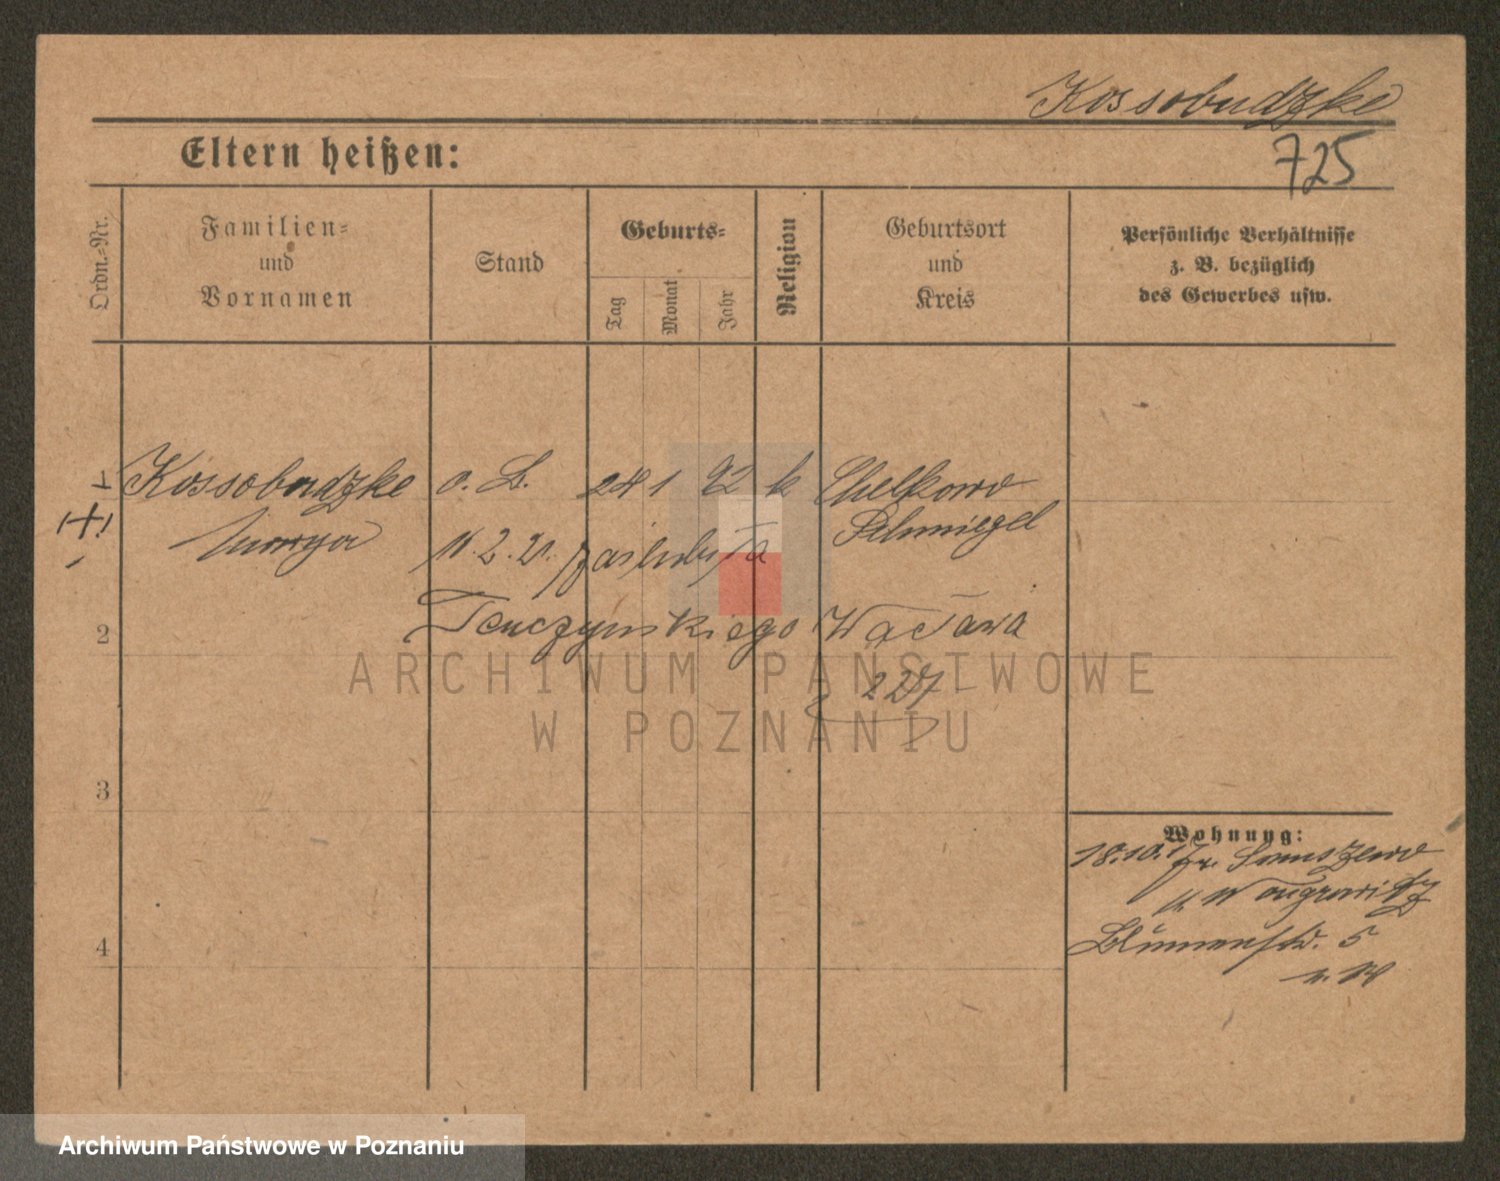 Kossobudzke
725
Eltern heißen:
Ordn.-Nr.
Familien- und Vornamen
Stand
Geburts-
Tag
Monat
Jahr
Religion
Geburtsort und Kreis
Persönliche Verhältnisse z. B. bezüglich des Gewerbes usw.
1 Kossobudzke o. B. 24 1 92 k Chelkowo
Schmiegel
11.2.21. zaślubiła
2 Tenczyńskiego Wacława
227
ARCHIWUM PAŃSTWOWE
W POZNANIU
3
Wohnung:
18.10.17
Wongrowitz
Blumenstr. 5
4
Archiwum Państwowe w Poznaniu